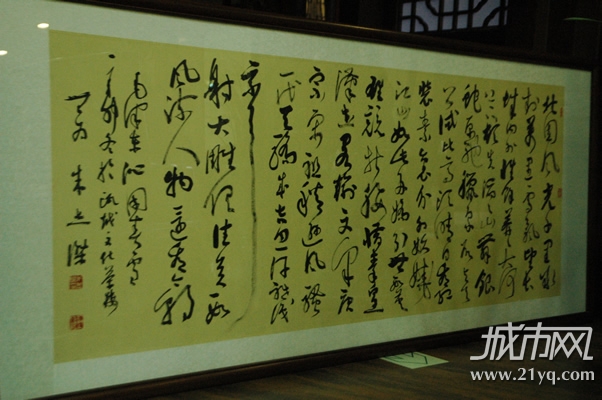 北国风光千里冰
封万里雪飘望长
城内外惟余莽莽大河
上下顿失滔滔山舞银
蛇原驰蜡象欲与天
公试比高须晴日看红
装素裹分外妖娆
江山如此多娇引无数英
雄竞折腰惜秦皇
汉武略输文采唐
宗宋祖稍逊风骚
一代天骄成吉思汗只识
弯弓
射大雕俱往矣数
风流人物还看今朝
毛泽东沁园春雪
城市网
www.21yq.com